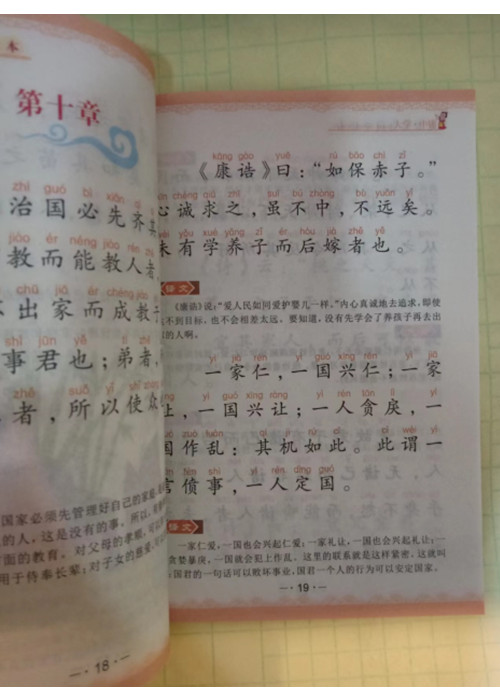 本
第十章
zhì guó bì xiān
治国必先齐其
jiāo ér néng jiāo rén
教而能教人者
chū jiā ér chéng jiào
出家而成教
shì jūn yě
事君也；弟者，
zhě suǒ yǐ shǐ zhòng
者，所以使众
国家必须先管理好自己的家庭
的人，这是没有的事。所以，
面的教育。对父母的孝顺，可以
用于侍奉长辈；对子女的慈爱
—·18·—
kāng gào yuē rú bǎo chì zǐ
《康诰》曰：“如保赤子。”
chéng qiú zhī suī bú zhòng bù yuǎn yǐ
心诚求之，虽不中，不远矣。
wèi yǒu xué yǎng zǐ ér hòu jià zhě yě
未有学养子而后嫁者也。
译文
《康诰》说：“爱人民如同爱护婴儿一样。”内心真诚地去追求，即使
达不到目标，也不会相差太远。要知道，没有先学会了养孩子再去出
的人啊。
yì jiā rén yì guó xīng rén yì jiā
一家仁，一国兴仁；一家
yì guó xīng ràng yì rén tān lì yì
让，一国兴让；一人贪戾，一
guó zuò luàn qí jī rú cǐ cǐ wèi yì
国作乱；其机如此。此谓一
fèn shì yì rén dìng guó
言偾事，一人定国。
译文
一家仁爱，一国也会兴起仁爱；一家礼让，一国也会兴起礼让；一
贪婪暴戾，一国就会犯上作乱。这里的联系就是这样紧密。这就叫
：国君的一句话可以败坏事业，国君一个人的行为可以安定国家。
—·19·—